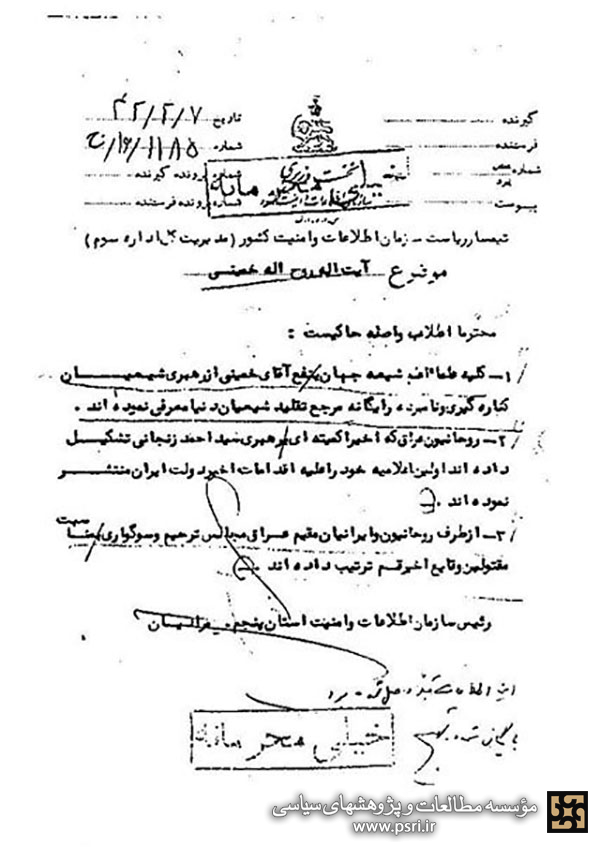 گیرنده
تاریخ ۴۲/۲/۷
فرستنده
شماره
پیوست
شماره پرونده گیرنده
شماره پرونده فرستنده
نخست وزیری
سازمان اطلاعات و امنیت کشور
تیمسار ریاست سازمان اطلاعات و امنیت کشور (مدیریت کل اداره سوم)
موضوع آیت اله روح اله خمینی
محترما اطلاب واصله حاکیست :
۱- کلیه علماء شیعه جهان بنفع آقای خمینی از رهبری شیعیان
کناره گیری و نامبرده را یگانه مرجع تقلید شیعیان دنیا معرفی نموده اند .
۲- روحانیون عراق که اخیرا کمیته ای برهبری سید احمد زنجانی تشکیل
داده اند اولین اعلامیه خود را علیه اقدامات اخیر دولت ایران منتشر
نموده اند .
۳- از طرف روحانیون و ایرانیان مقیم عراق مجالس ترحیم و سوگواری بمناسبت
مقتولین وقایع اخیر قم ترتیب داده اند .
رئیس سازمان اطلاعات و امنیت استان پنجم .
خیلی محرمانه
مؤسسه مطالعات و پژوهشهای سیاسی
www.psri.ir